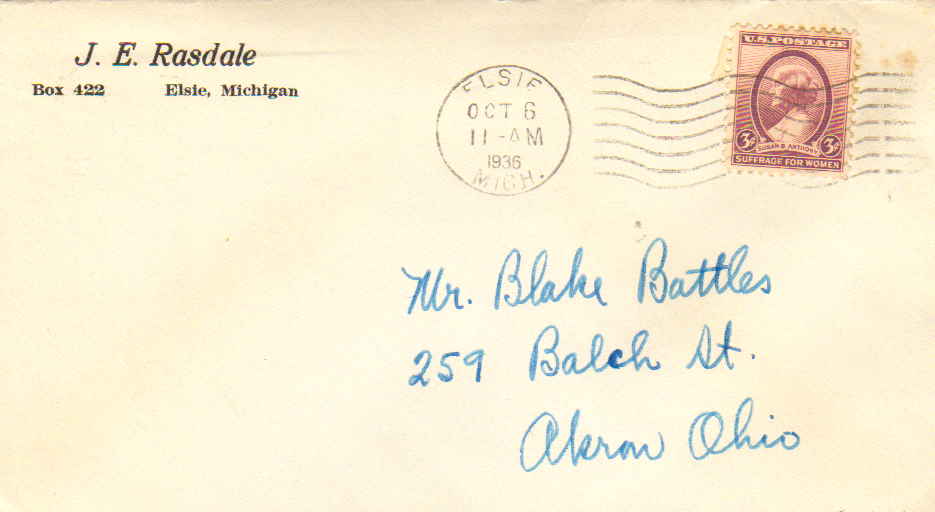 J. E. Rasdale
Box 422 Elsie, Michigan
ELSIE
OCT 6
11-AM
1936
MICH.
U.S. POSTAGE
3¢ SUSAN B. ANTHONY 3¢
SUFFRAGE FOR WOMEN
Mr. Blake Battles
259 Balch St.
Akron Ohio